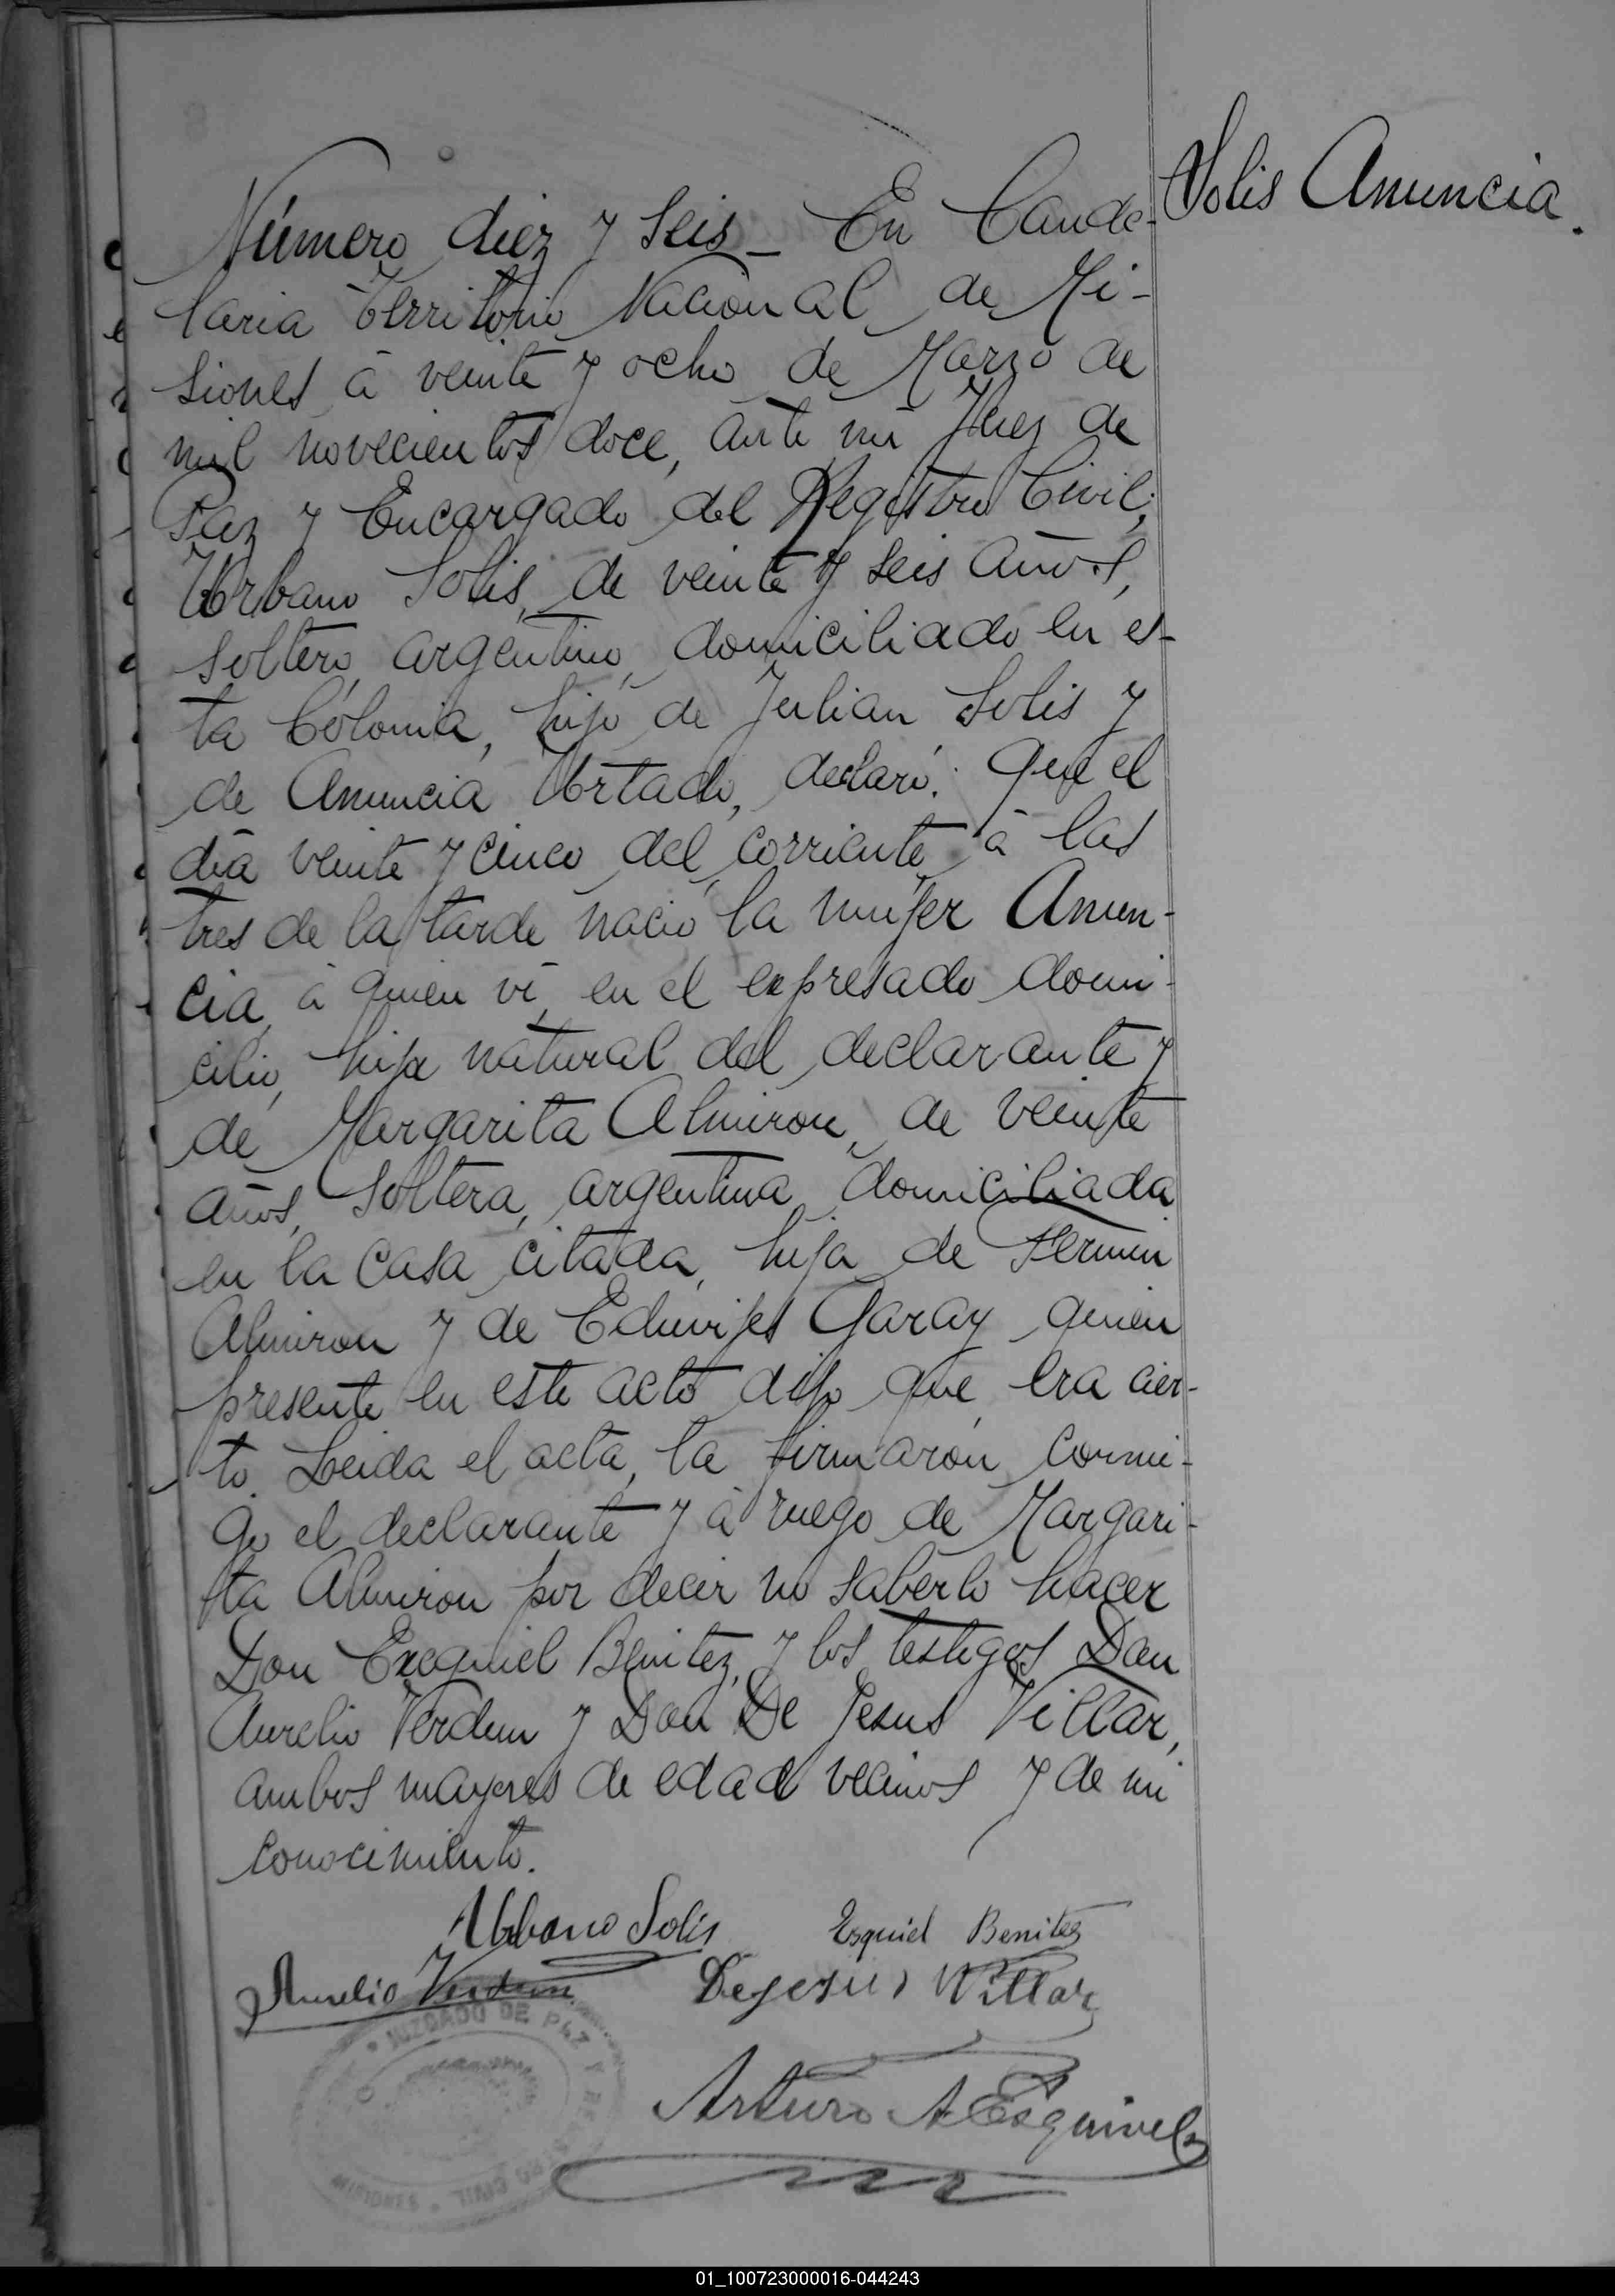 Solis Anuncia.
Número diez y seis – En Cande-
laria Territorio Nacional de Mi-
siones á veinte y ocho de Marzo de
mil novecientos doce, ante mi Juez de
Paz y Encargado del Registro Civil,
Urbano Solis, de veinte y seis años,
soltero, argentino, domiciliado en es-
ta Colonia, hijo de Julian Solis y
de Anuncia Urtado, declaró: Que el
dia veinte y cinco del corriente á las
tres de la tarde nació la mujer Anun-
cia, á quien vi, en el expresado domi-
cilio, hija natural del declarante y
de Margarita Almiron, de veinte
años, soltera, argentina, domiciliada
en la casa citada, hija de Fermin
Almiron y de Eduvijes Garay quien
presente en este acto dijo que era cier-
to. Leida el acta, la firmaron conmi-
go el declarante y á ruego de Margari-
ta Almiron por decir no saberlo hacer
Don Exequiel Benitez, y los testigos Don
Aurelio Verdun y Don De Jesus Villar,
ambos mayores de edad vecinos y de mi
conocimiento.
Urbano Solis Esquiel Benitez
Aurelio Verdun Dejesus Villar
JUZGADO DE PAZ Y
Arturo A Esquivel
CIVIL • MISIONES
01_100723000016-044243